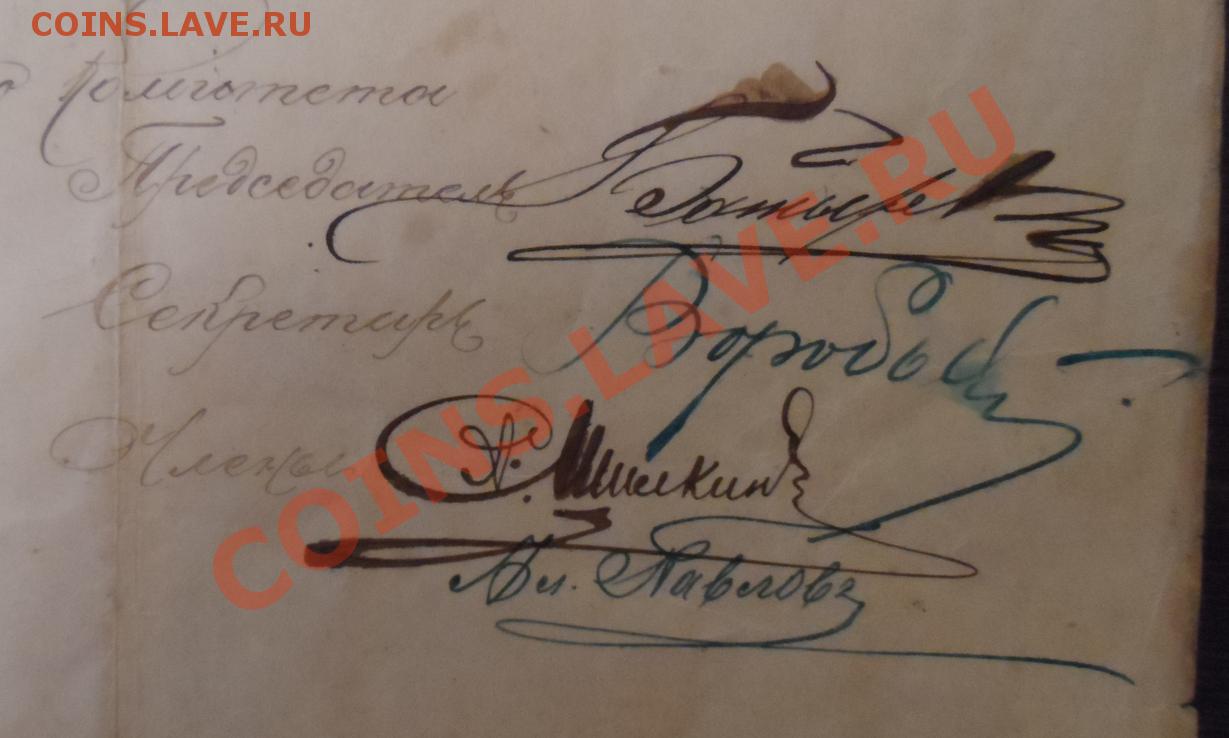 COINS.LAVE.RU
Комитета
Председатель
Секретарь Воробьев
Члены А. Шишкинъ
Вл. Павловъ
COINS.LAVE.RU